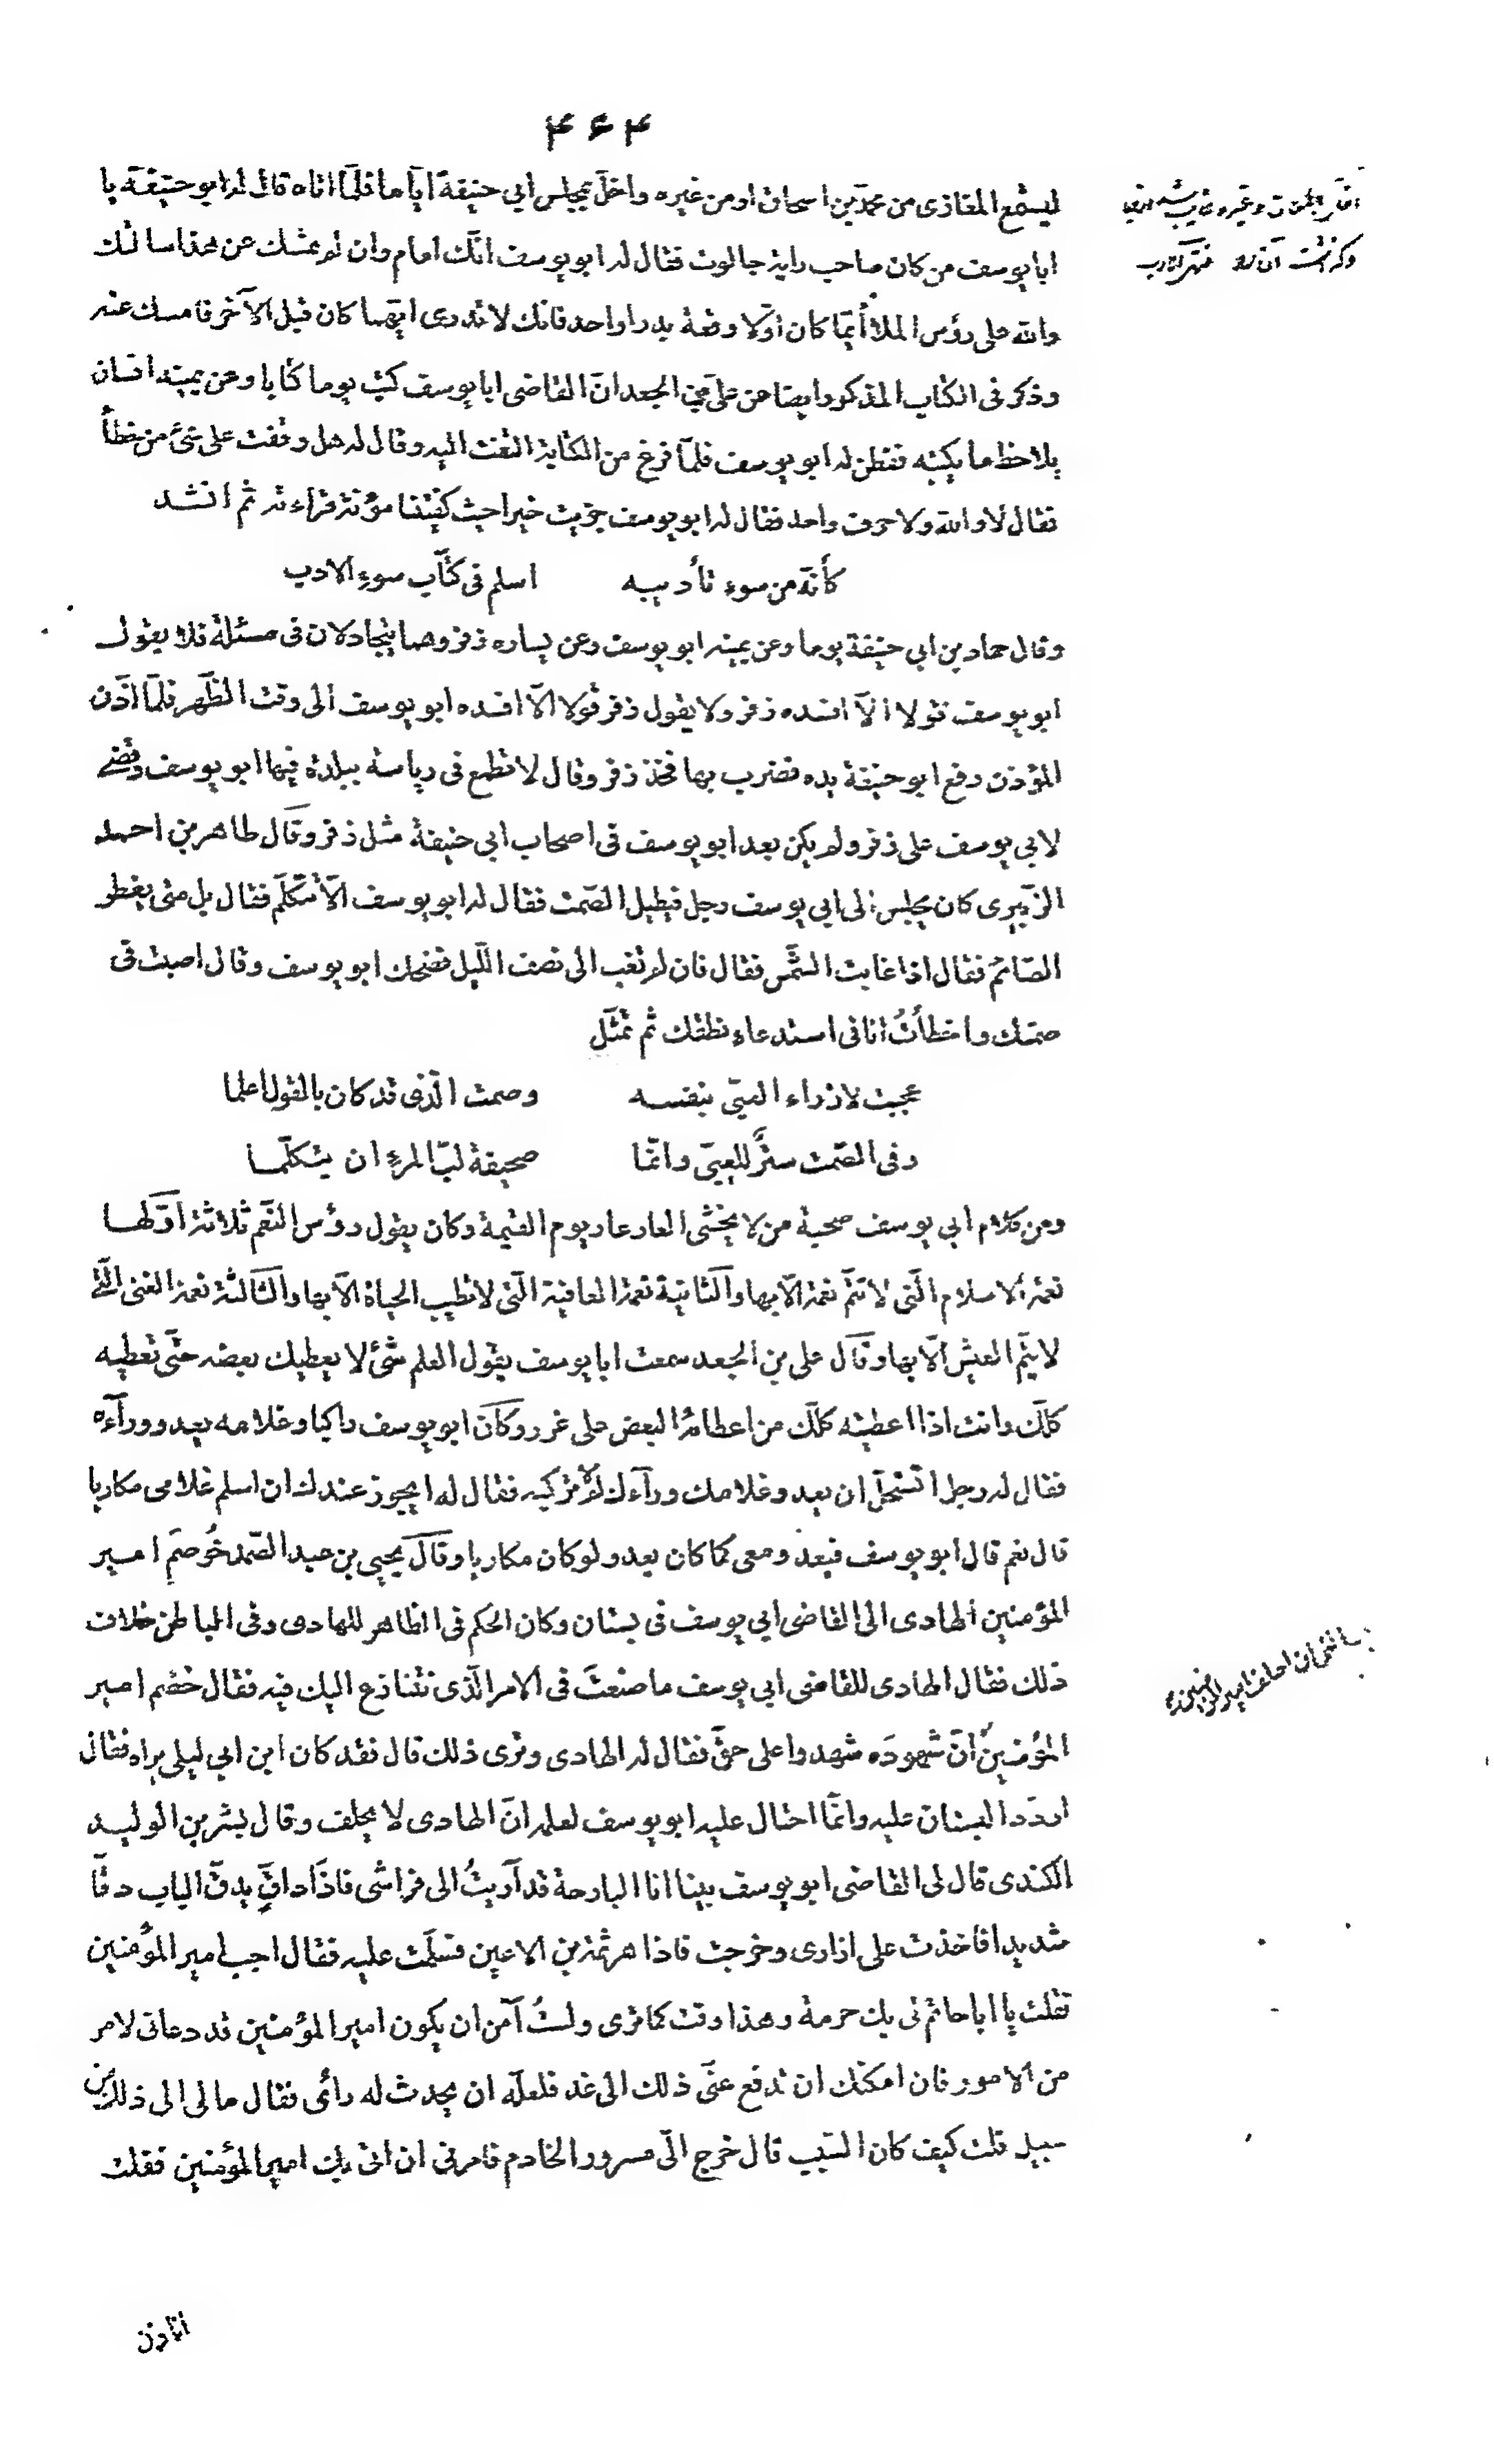 ۴۶۴
ليسمع المغازى من محمّد بن اسحاق او من غيره واخلّ بمجلس ابي حنيفة ايّاما فلمّا اتاه قال له ابو حنيفة يا
ابا يوسف من كان صاحب راية جالوت فقال له ابو يوسف انّك امام وان لم تمسك عن هذا سالتك
والله على رؤس الملأ أيّما كان اوّلا وقعة بدر او احد فانّك لا تدرى ايّهما كان قبل الآخر فامسك عنه
وذكر فى الكتاب المذكور ايضا عن علىّ بن الجعد انّ القاضى ابا يوسف كتب يوما كتابا وعن يمينه انسان
يلاحظ ما يكتبه ففطن له ابو يوسف فلمّا فرغ من الكتابة التفت اليه وقال له هل وقفت على شئ من خطأ
فقال لا والله ولا حرف واحد فقال له ابو يوسف جزيت خيرا حيث كفيتنا مؤنة قراءته ثم انشد
كأنّه من سوء تأديبه اسلم فى كتّاب سوء الادب
وقال حماد بن ابي حنيفة يوما وعن يمينه ابو يوسف وعن يساره زفر وهما يتجادلان فى مسئلة فلا يقول
ابو يوسف قولا الّا افسده زفر ولا يقول زفر قولا الّا افسده ابو يوسف الى وقت الظّهر فلمّا اذّن
المؤذن رفع ابو حنيفة يده فضرب بها فخذ زفر وقال لا تطمع فى رياسة ببلدة فيها ابو يوسف وقضى
لابي يوسف على زفر ولم يكن بعد ابو يوسف فى اصحاب ابي حنيفة مثل زفر وقال طاهر بن احمد
الزّبيرى كان يجلس الى ابي يوسف رجل فيطيل الصّمت فقال له ابو يوسف الا تتكلّم فقال بل متى يفطر
الصّائم فقال اذا غابت الشّمس فقال فان لم تغب الى نصف اللّيل فضحك ابو يوسف وقال اصبت فى
صمتك واخطأتُ انا فى استدعاء نطقك ثم تمثّل
عجبت لازراء العيىّ بنفسه وصمت الّذى قد كان بالقول اعلما
وفى الصّمت سترٌ للعيىّ وانّما صحيفة لبّ المرء ان يتكلّما
ومن كلام ابي يوسف صحبة من لا يخشى العار عار يوم القيمة وكان يقول رؤس النّعم ثلاثة اوّلها
نعمة الاسلام الّتى لا تتمّ نعمة الّا بها والثّانية نعمة العافية الّتى لا تطيب الحياة الّا بها والثّالثة نعمة الغنى الّتى
لا يتمّ العيش الّا بها وقال على بن الجعد سمعت ابا يوسف يقول العلم شئ لا يعطيك بعضه حتّى تعطيه
كلّك وانت اذا اعطيته كلّك من اعطائه البعض على غرر وكان ابو يوسف راكبا وغلامه يعدو ورآءه
فقال له رجل اتستحلّ ان يعدو غلامك ورآءك لم لا تركبه فقال له ايجوز عندك ان اسلم غلامى مكاريا
قال نعم قال ابو يوسف فيعدو معى كما كان يعدو لو كان مكاريا وقال يحيى بن عبد الصّمد خُوصِمَ امير
المؤمنين الهادى الى القاضى ابي يوسف فى بستان وكان الحكم فى الظاهر للهادى وفى الباطن خلاف
ذلك فقال الهادى للقاضى ابي يوسف ما صنعتَ فى الامر الّذى نتنازع اليك فيه فقال خصم امير
المؤمنين انّ شهودَه شهدوا على حقّ فقال له الهادى وترى ذلك قال فقد كان ابن ابي ليلى يراه فقال
اردد البستان عليه وانّما احتال عليه ابو يوسف لعلمه انّ الهادى لا يحلف وقال بشر بن الوليد
الكندى قال لى القاضى ابو يوسف بينا انا البارحة قد آويتُ الى فراشى فاذا داقٍّ يدقّ الباب دقّا
شديدا فاخذت على ازارى وخرجت فاذا هرثمة بن الاعين فسلّمت عليه فقال اجب امير المؤمنين
فقلت يا ابا حاتم لى بك حرمة وهذا وقت كما ترى ولستُ آمن ان يكون امير المؤمنين قد دعانى لامر
من الامور فان امكنك ان تدفع عنّى ذلك الى غد فلعلّه ان يحدث له رأى فقال ما لى الى ذلك من
سبيل قلت كيف كان السّبب قال خرج الىّ مسرور الخادم فامرنى ان اتى بك امير المؤمنين فقلت